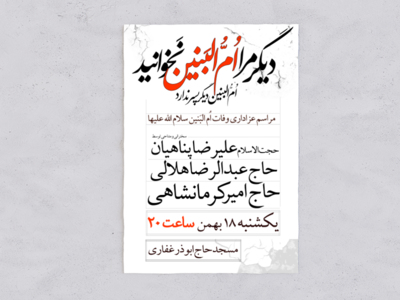 دیگر مرا اُمُّ البَنین نَخوانید
اُمّ البنین دیگر پسر ندارد
مراسم عزاداری وفات اُم البَنین سلام الله علیها
سخنرانی و مداحی توسط
حجت الاسلام علیرضا پناهیان
حاج عبدالرضا هلالی
حاج امیر کرمانشاهی
یکشنبه ۱۸ بهمن ساعت ۲۰
مسجد حاج ابوذر غفاری